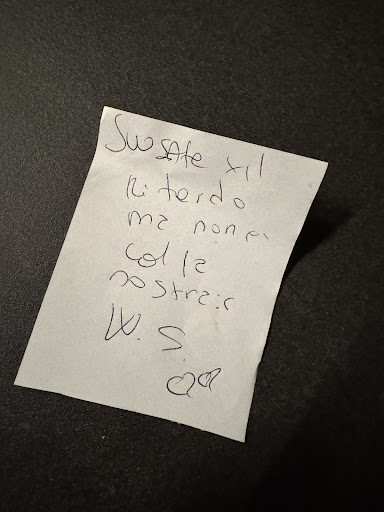 Scusate x il
Ritardo
ma non è
colpa
nostra :c
W. S.